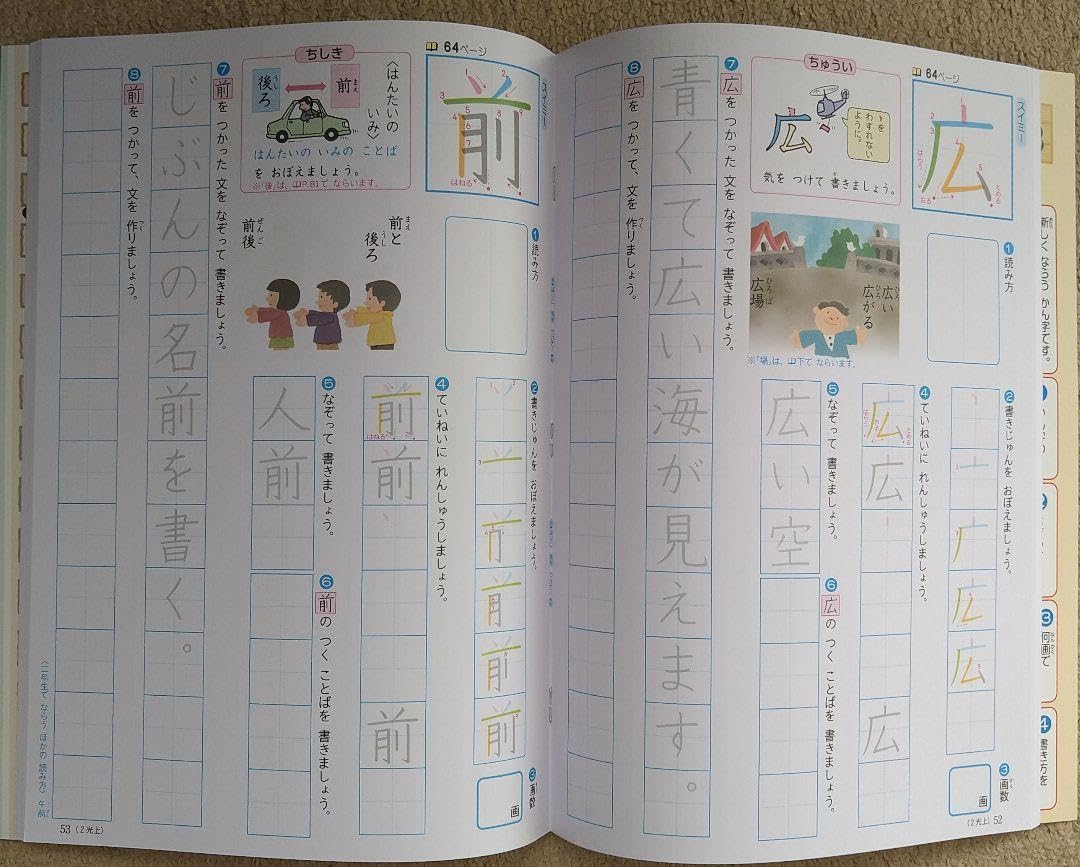 スイミー
64ページ
広
はらう
おる
とめる
ちゅうい
広
、をわすれないように。
気を つけて 書きましょう。
❶読み方
広い
広がる
広場
※「場」は、㊥下で ならいます。
❷書きじゅんを おぼえましょう。
❸画数
画
❹ていねいに れんしゅうしましょう。
広
広
広
❺なぞって 書きましょう。
広い空
❻広の つく ことばを 書きましょう。
❼広を つかった 文を なぞって 書きましょう。
青くて広い海が見えます。
❽広を つかって、文を 作りましょう。
52
(2光上)
スイミー
64ページ
前
はねる
ちしき
〈はんたいの いみ〉
前
後ろ
はんたいの いみの ことばを おぼえましょう。
❶読み方
前と後ろ
前後
❷書きじゅんを おぼえましょう。
❸画数
画
❹ていねいに れんしゅうしましょう。
前
はねる
前
前
❺なぞって 書きましょう。
人前
❻前の つく ことばを 書きましょう。
❼前を つかった 文を なぞって 書きましょう。
じぶんの名前を書く。
❽前を つかって、文を 作りましょう。
〈二年生で ならう ほかの 読み方〉 午前
53
(2光上)
新しく ならう かん字です。
❸何画で
❹書き方を